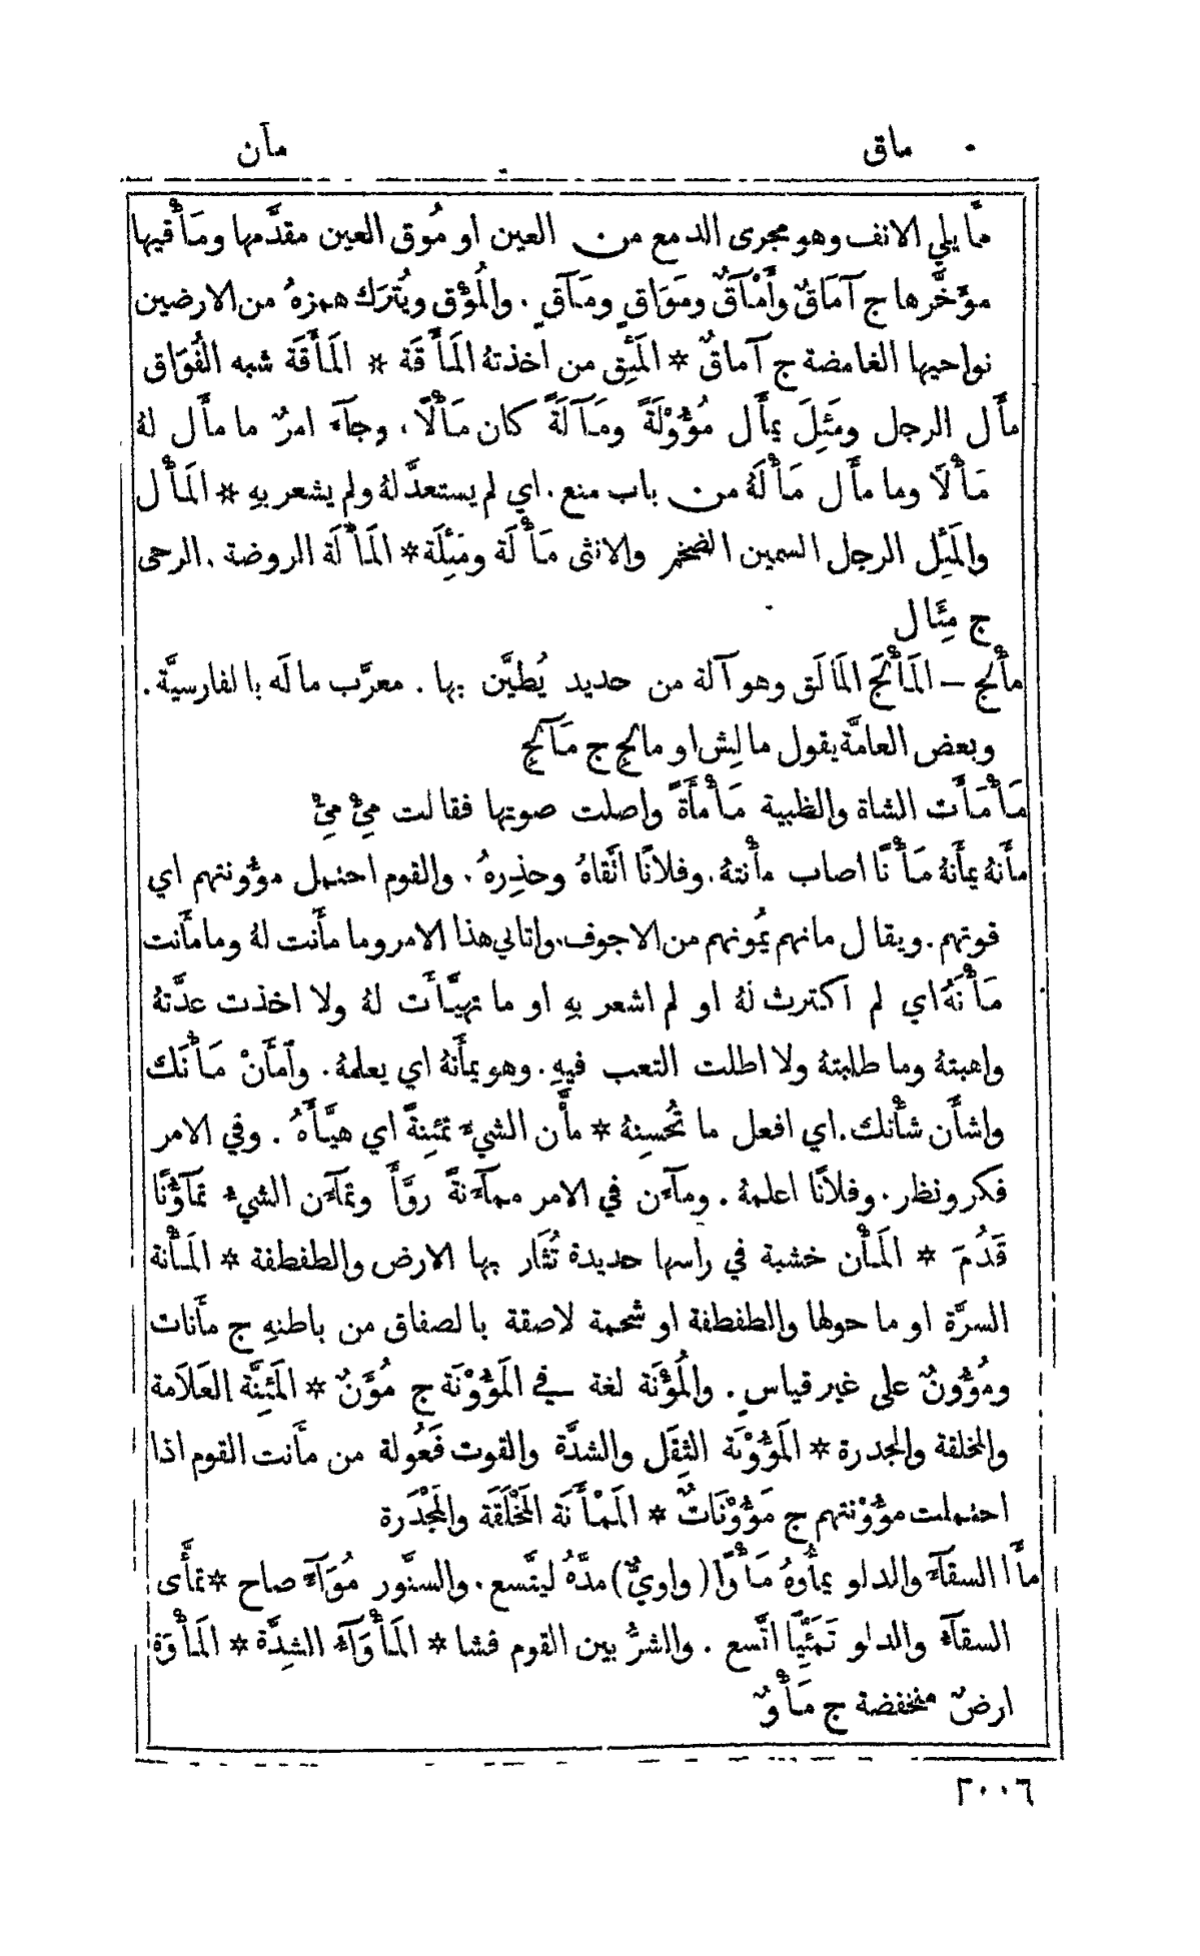 ماق مأن
ممَّا يلي الانف وهو مجرى الدمع من العين او مُوق العين مقدَّمها ومَأْقيها
مؤَخَّرها ج آمَاقٌ وأَمْآقٌ ومَوَاقٍ ومَآقٍ. والمُؤْق ويُترَك همزهُ من الارضين
نواحيها الغامضة ج آماقٌ * المَئِق من اخذتهُ المَأَقَة * المَأَقَة شبه الفُوَاق
مأَل الرجل ومَئِلَ يمأَل مُؤُوْلَةً ومَآلَةً كان مَأْلًا. وجآءَ امرٌ ما مأَل لهُ
مَأْلًا وما مأَل مَأْلَهُ من باب منع. اي لم يستعدَّ لهُ ولم يشعر بهِ * المَأْل
والمَئِل الرجل السمين الضخم والانثى مَأْلَة ومَئِلَة * المَأْلَة الروضة. الرحى
ج مِئَال
مألج – المَأْلَج المَالَق وهو آلة من حديد يُطيَّن بها. معرَّب مالَه بالفارسيَّة.
وبعض العامَّة يقول مالِش او مالج ج مَآلِج
مَأْمَأَت الشاة والظبية مَأْمأَةً واصلت صوتها فقالت مِئْ مِئْ
مأَنهُ يمأَنهُ مَأْنًا اصاب مأْنتهُ. وفلانًا اتَّقاهُ وحذِرهُ. والقوم احتمل مؤُونتهم اي
قوتهم. ويقال مانهم يَمُونهم من الاجوف. واتاني هذا الامر وما مأَنت لهُ وما مأَنت
مَأْنَهُ اي لم اكترث لهُ او لم اشعر بهِ او ما تهيَّأْت لهُ ولا اخذت عدَّتهُ
واهبتهُ وما طلبتهُ ولا اطلت التعب فيهِ. وهو يمأَنهُ اي يعلمهُ. وٱمأَنْ مَأْنَك
واشأَن شأْنك. اي افعل ما تُحْسِنهُ * مأَّن الشيءَ تمئِنةً اي هيَّأَهُ. وفي الامر
فكر ونظر. وفلانًا اعلمهُ. ومآءَن في الامر ممآءَنةً روَّأَ وتمآءَن الشيءُ تمآؤُنًا
قَدُمَ * المَأْن خشبة في راسها حديدة تُثَار بها الارض والطفطفة * المَأْنة
السرَّة او ما حولها والطفطفة او شحمة لاصقة بالصفاق من باطنهِ ج مأَنات
ومُؤُونٌ على غير قياسٍ. والمُؤْنَة لغة في المَؤُوْنَة ج مُؤَنٌ * المَئِنَّة العَلَامة
والمخلقة والمجدرة * المَؤُوْنَة الثِقَل والشدَّة والقوت فَعُولة من مأَنت القوم اذا
احتملت مؤُوْنتهم ج مَؤُوْنَاتٌ * المَمْأَنَة المَخْلَقَة والمَجْدَرة
مأَا السقآءَ والدلو يمأُوهُ مَأْوًا (واويٌّ) مدَّهُ ليتَّسع. والسنَّور مُوَآءً صاح * تمأَّى
السقآءُ والدلو تَمَئِّيًا اتَّسع. والشرُّ بين القوم فشا * المَأْوَآءُ الشِدَّة * المَأْوَة
ارضٌ منخفضة ج مَأْوٌ
٢٠٠٦